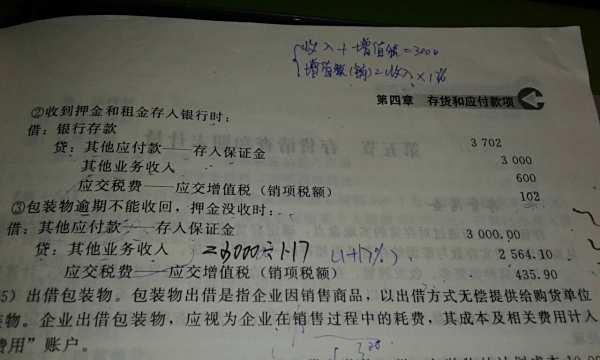 收入+增值税=3000
增值税(销)=收入×17%
第四章 存货和应付款项
②收到押金和租金存入银行时:
借:银行存款 3 702
贷:其他应付款——存入保证金 3 000
其他业务收入 600
应交税费——应交增值税(销项税额) 102
③包装物逾期不能收回,押金没收时:
借:其他应付款——存入保证金 3 000.00
贷:其他业务收入 =3000÷1.17 (1+17%) 2 564.10
应交税费——应交增值税(销项税额) 435.90
5)出借包装物。包装物出借是指企业因销售商品,以出借方式无偿提供给购货单位
装物。企业出借包装物,应视为企业在销售过程中的耗费,其成本及相关费用计入
费用”账户。